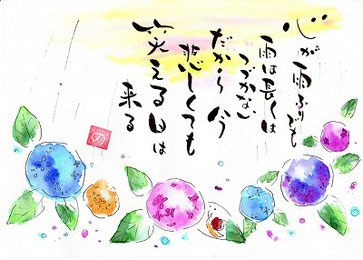 心が雨ふりでも
雨は長くは
つづかない
だから今
悲しくても
笑える日は
来る
の